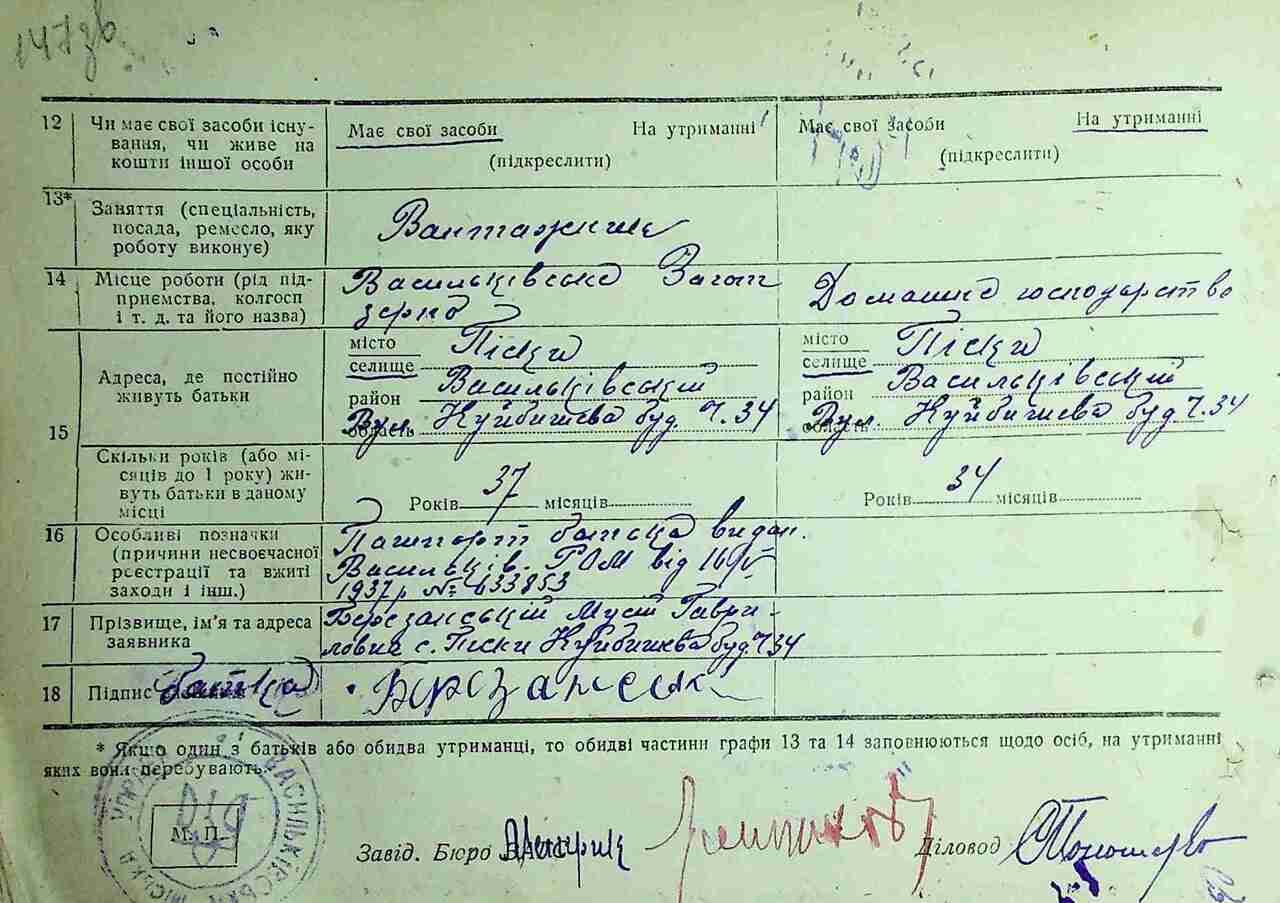 147зв
12 Чи має свої засоби існу-
вання, чи живе на
кошти іншої особи
Має свої засоби На утриманні
(підкреслити)
Має свої засоби На утриманні
(підкреслити)
13* Заняття (спеціальність,
посада, ремесло, яку
роботу виконує)
Вантажник
14 Місце роботи (рід під-
приємства, колгосп
і т. д. та його назва)
Васильківське Загот
зерно
Домашнє господарство
15 Адреса, де постійно
живуть батьки
місто
селище Піски
район Васильківський
область Вул. Куйбишева буд. Ч. 34
місто
селище Піски
район Васильківський
область Вул. Куйбишева буд. Ч. 34
Скільки років (або мі-
сяців до 1 року) жи-
вуть батьки в даному
місці
Років 37 місяців
Років 34 місяців
16 Особливі позначки
(причини несвоєчасної
реєстрації та вжиті
заходи і інш.)
Пашпорт батька видан.
Васильків. РОМ від
1937р № 633853
17 Прізвище, ім'я та адреса
заявника
Березанський Мусій Гаври-
лович с. Піски Куйбишева буд. Ч 34
18 Підпис батька
* Якщо один з батьків або обидва утриманці, то обидві частини графи 13 та 14 заповнюються щодо осіб, на утриманні
яких вони перебувають.
М. П.
Завід. Бюро ЗАГС
Діловод